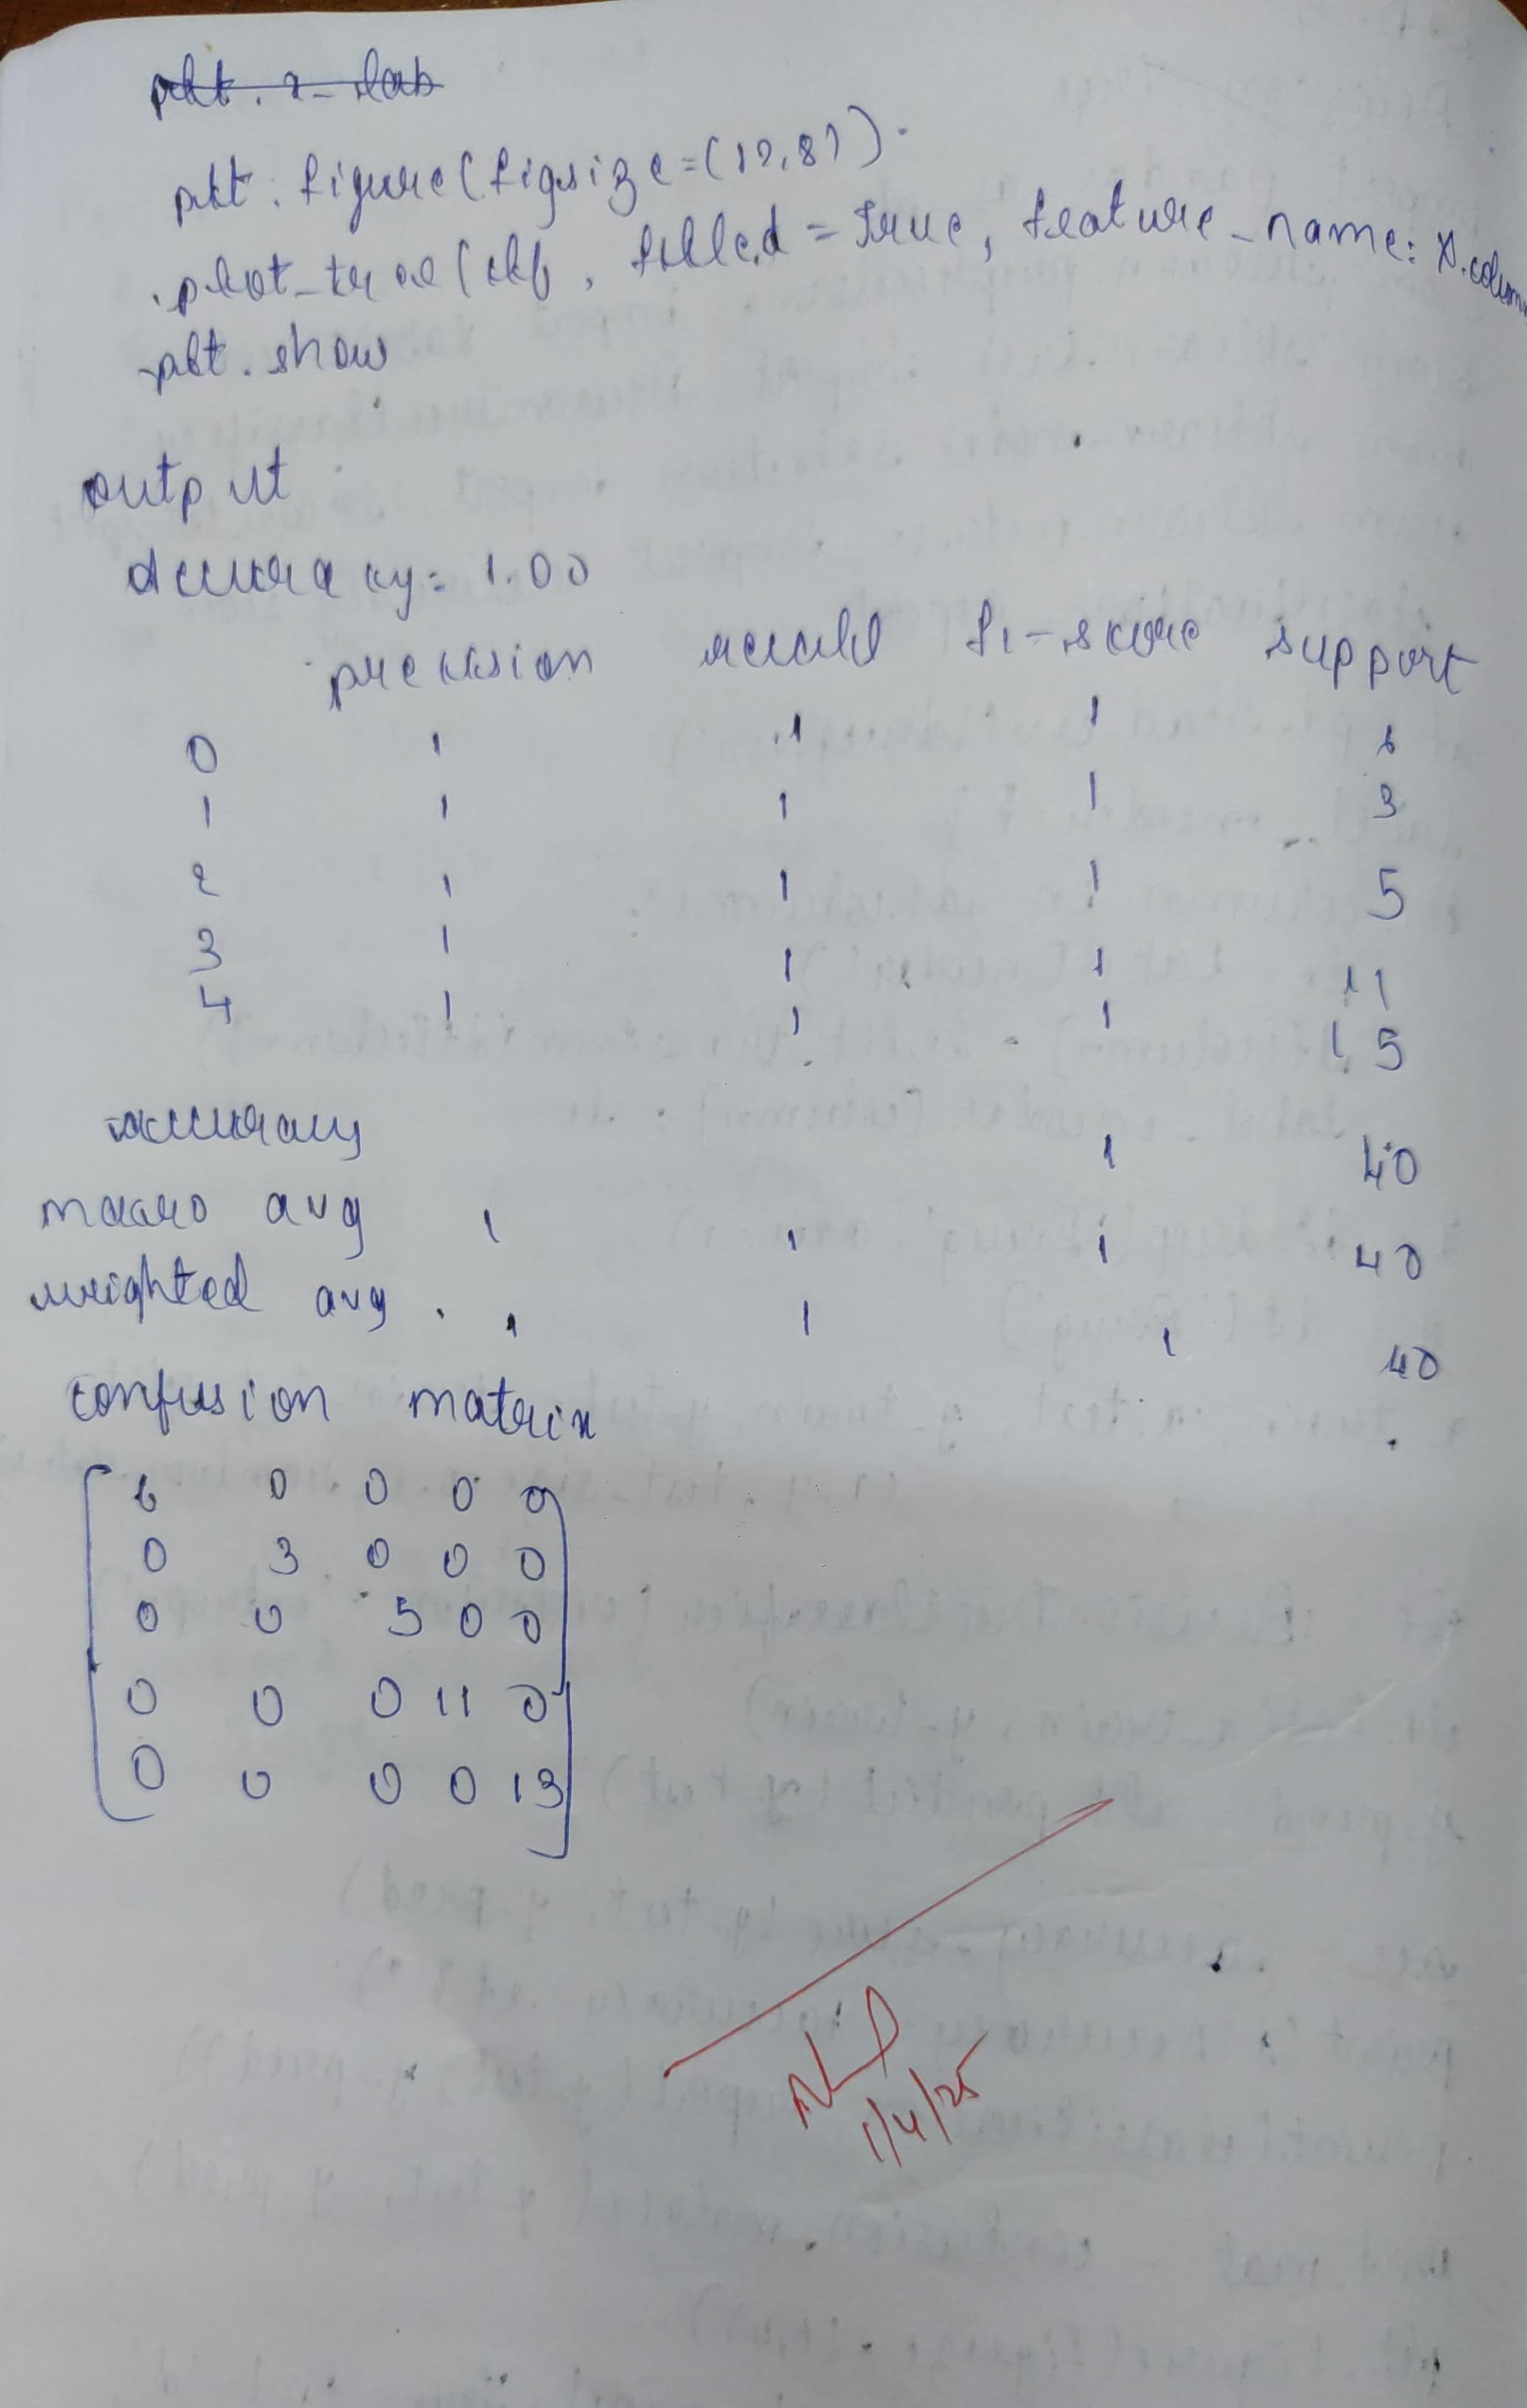 plt. x- lab
plt. figure(figsize=(12,8))
plot_tree(clf, filled = True, feature_name: X.colum
plt. show
output
Accuracy= 1.00
precision recall f1-score support
0 1 1 1 6
1 1 1 1 3
2 1 1 1 5
3 1 1 1 11
4 1 1 1 15
accuracy 1 40
macro avg 1 1 1 40
weighted avg 1 1 1 40
confusion matrix
6 0 0 0 0
0 3 0 0 0
0 0 5 0 0
0 0 0 11 0
0 0 0 0 13
1/4/25